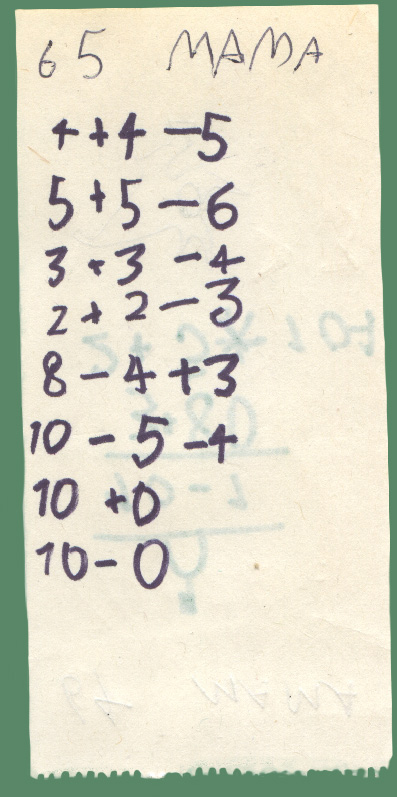 65 MAMA
4+4-5
5+5-6
3+3-4
2+2-3
8-4+3
10-5-4
10+0
10-0